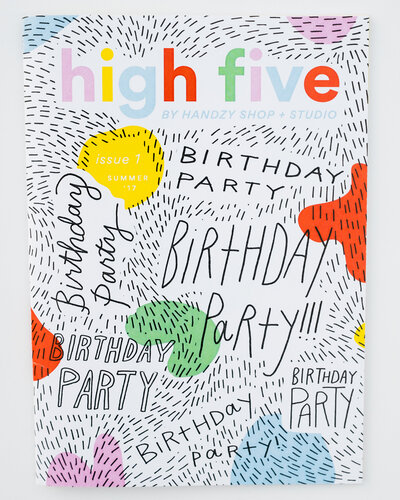 high five
BY HANDZY SHOP + STUDIO
issue 1
SUMMER
'19
BIRTHDAY
PARTY
Birthday
Party
BIRTHDAY
PaRTY!!!
BIRTHDAY
PARTY
BIRTHDAY
PARTY
BirtHday
party!